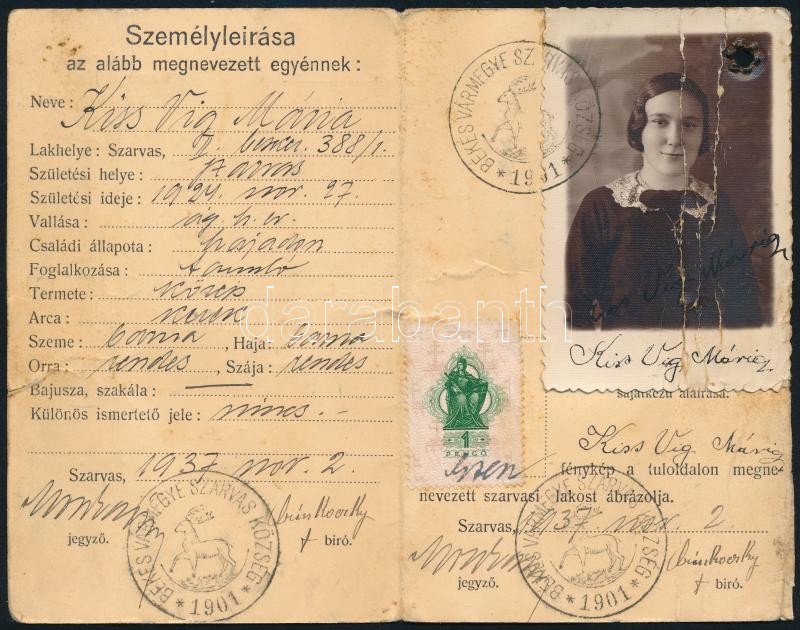 Személyleirása
az alább megnevezett egyénnek:
Neve: Kiss Vig Mária
Lakhelye: Szarvas, 388/1.
Születési helye: Szarvas
Születési ideje: 1924. nov. 27.
Vallása: ág. h. ev.
Családi állapota: hajadon
Foglalkozása: tanuló
Termete: közép
Arca: kerek
Szeme: barna, Haja: barna
Orra: rendes, Szája: rendes
Bajusza, szakála: —
Különös ismertető jele: nincs. -
Szarvas, 1937 nov. 2.
jegyző. biró.
BÉKÉS VÁRMEGYE SZARVAS KÖZSÉG
* 1901 *
BÉKÉS VÁRMEGYE SZARVAS KÖZSÉG
* 1901 *
Kiss Vig Mária
Kiss Vig Mária
sajátkezű aláírása.
1
PENGŐ
Kiss Vig Mária
fénykép a tuloldalon megne-
nevezett szarvasi lakost ábrázolja.
Szarvas, 1937. nov. 2
jegyző. biró.
BÉKÉS VÁRMEGYE SZARVAS KÖZSÉG
* 1901 *
darabanth